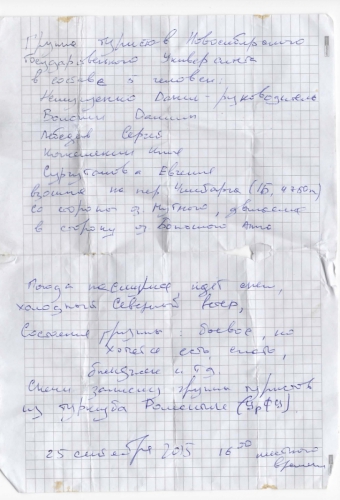 Группа туристов Новосибирского
Государственного Университета
в составе 5 человек:
Денис - руководитель
Даниил
Лебедев Сергей
Илья
Евгения
взошла на пер Чимбарга (1Б, 4750м)
со стороны оз Мутного, движемся
в сторону оз Большого Алло
Погода пасмурное идет снег,
холодный Северный ветер,
Состояние группы: боевое, но
хочется есть, спать,
и т.д.
Сняли записку группы туристов
из турклуба Романтик (УрФУ).
25 сентября 2015 16⁰⁰ местного
времени